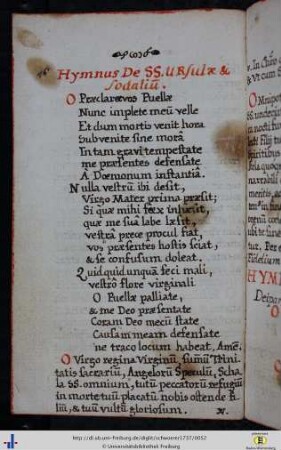 Hymnus De SS. Ursulæ &
Sodaliũ.
O Præclaræ vos Puellæ
Nunc implete meũ velle
Et dum mortis venit hora
Subvenite sine mora
In tam gravi tempestate
me præsentes defensate
A Dœmonum instantia.
Nulla vestrũ ibi desit,
Virgo Mater prima præsit;
Si quæ mihi fœx inhæsit,
quæ me sua labe læsit,
vestrâ prece procul fiat,
vos præsentes hostis sciat,
& se confusum doleat.
Quidquid unquã feci mali,
vestro flore virginali
O Puellæ palliate,
& me Deo præsentate
Coram Deo mecũ state
Causam meam defensate
ne traco locum habeat. Amẽ.
O Virgo regina Virginũ, sum̃i Trini-
tatis sacrariũ, Angelorũ Speculũ, Scha-
la SS. omnium, tutũ peccatorũ refugiũ
in morte tuũ placatũ nobis ostende fi-
liũ, & tuũ vultũ gloriosum.
http://dl.ub.uni-freiburg.de/diglit/schwoerer1737/0052
© Universitätsbibliothek Freiburg